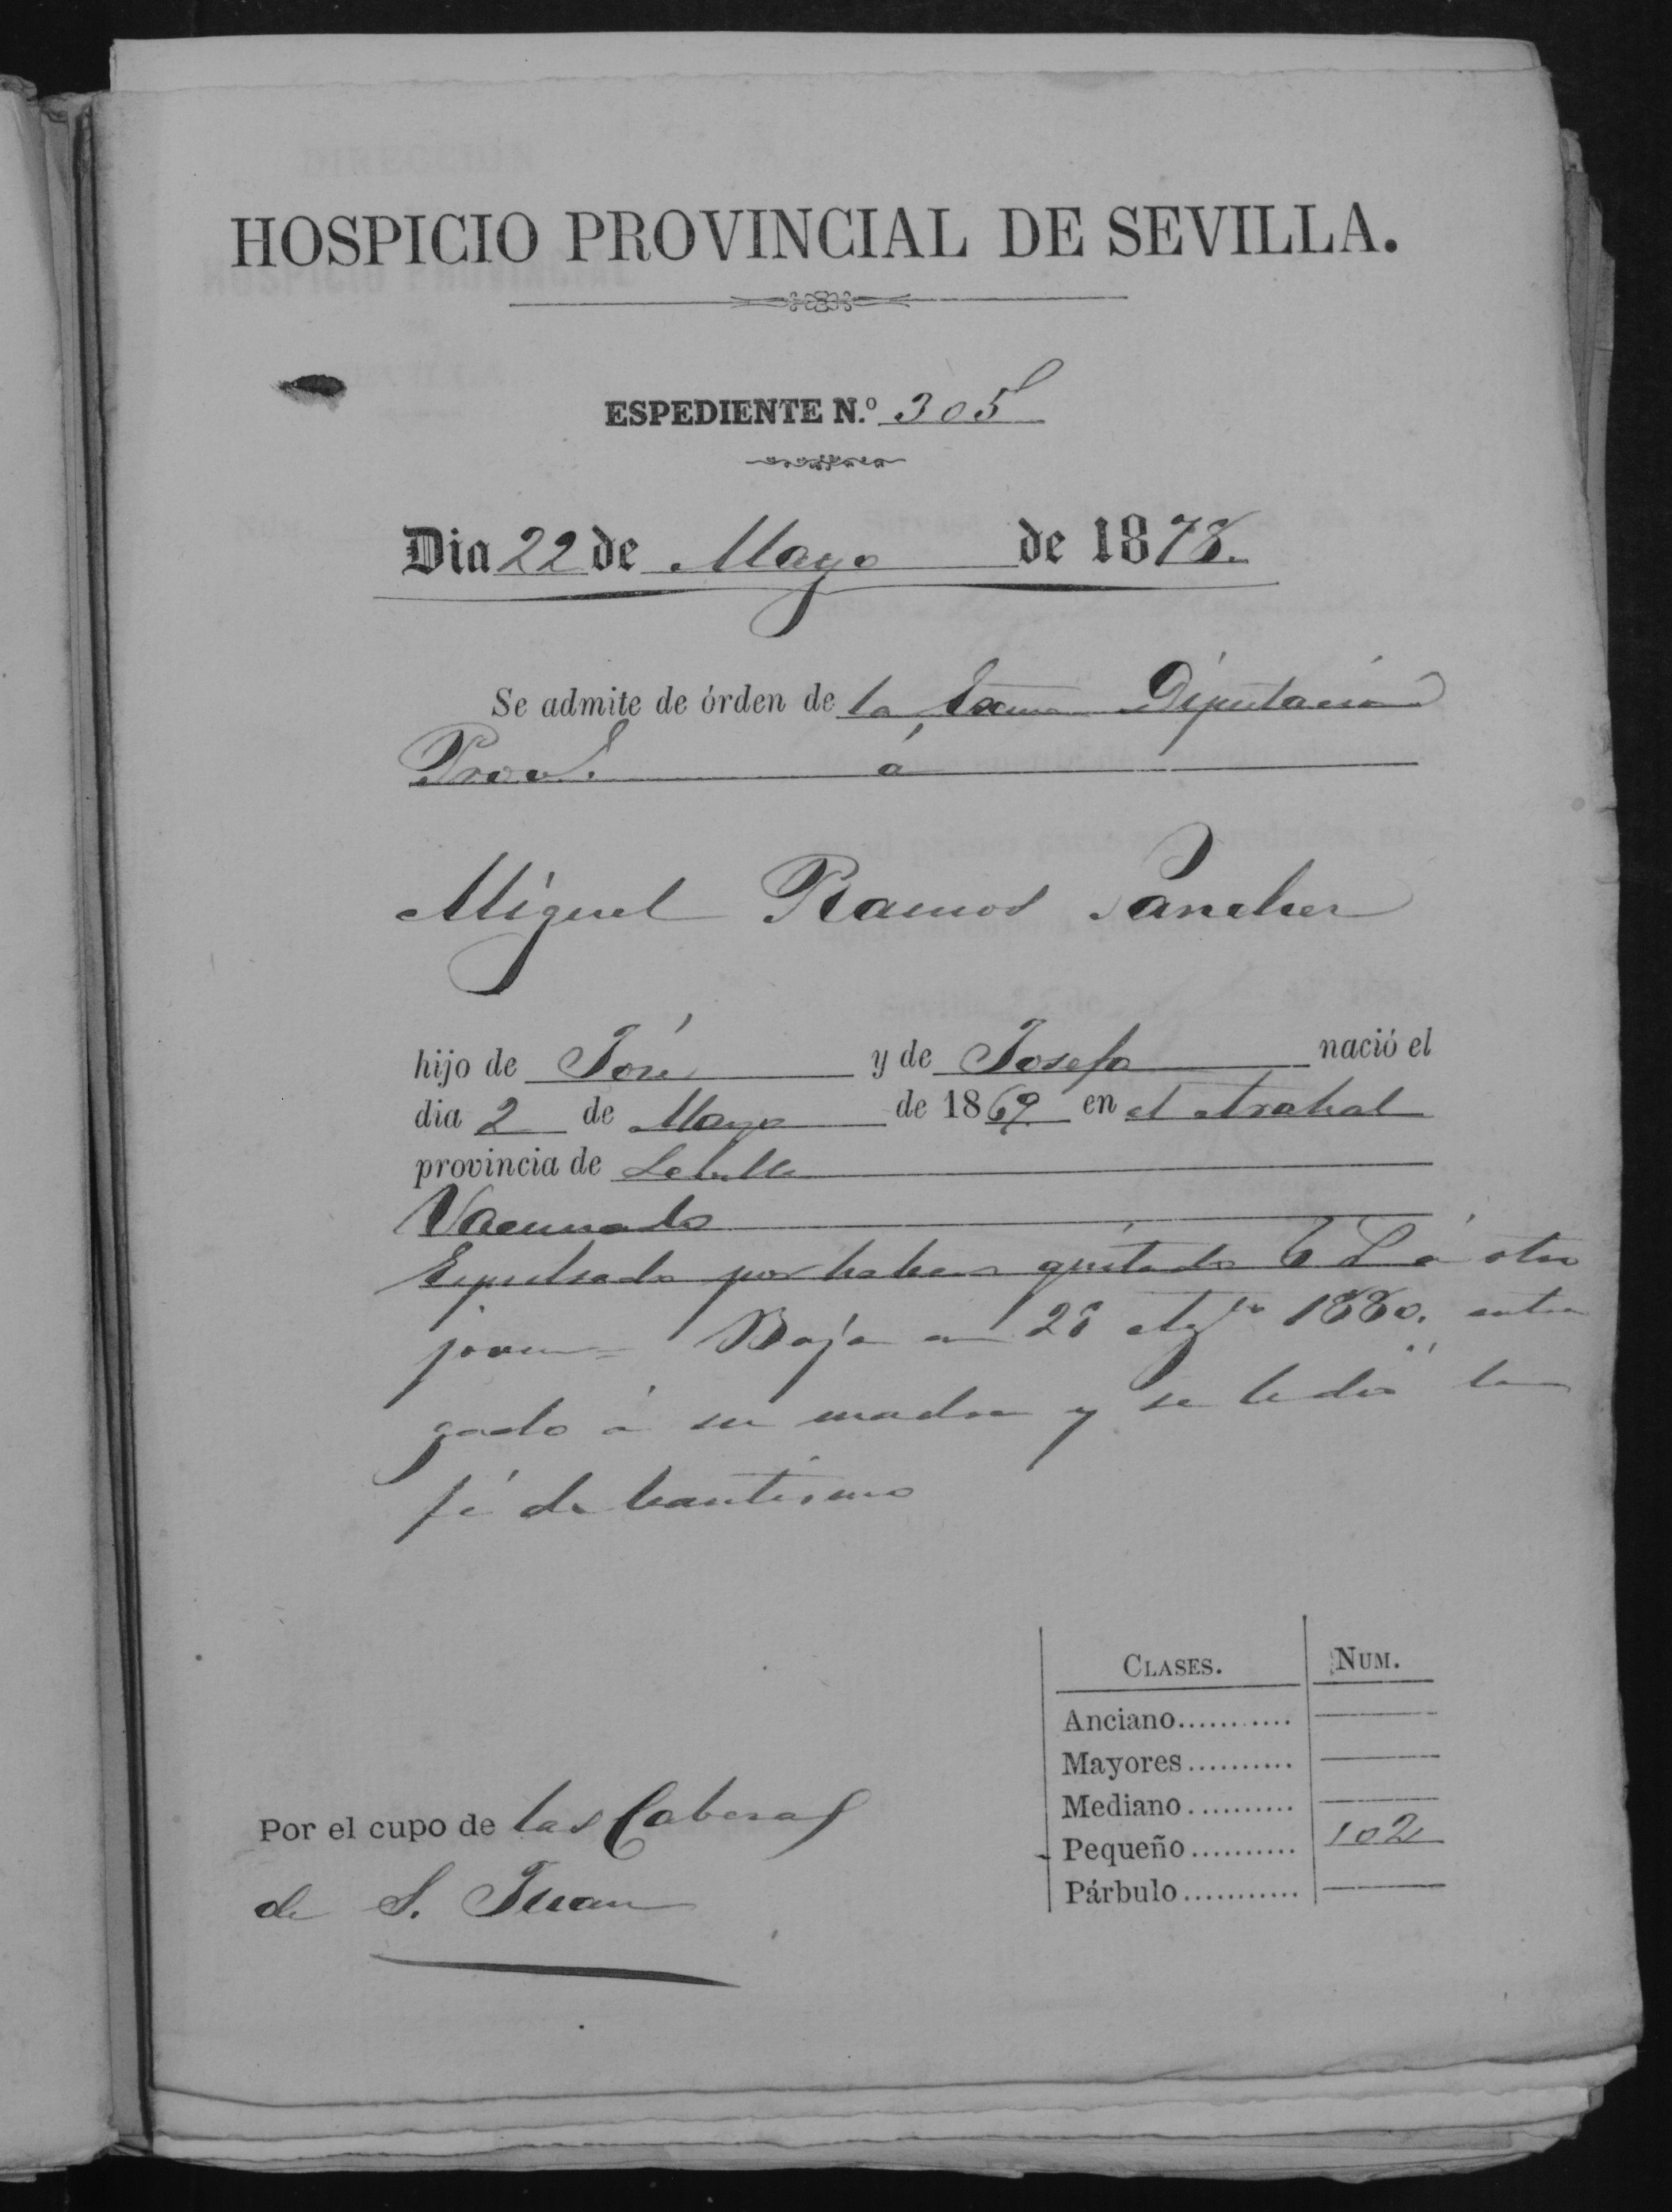 HOSPICIO PROVINCIAL DE SEVILLA.
ESPEDIENTE N.º 305
Dia 22 de Mayo de 1878.
Se admite de órden de la Excma Diputacion
Prov.l á
Miguel Ramos Sanchez
hijo de José y de Josefa nació el
dia 2 de Mayo de 1869 en el Arahal
provincia de Sevilla
Vacunado
Expulsado por haber quitado 6 á otro
joven = Baja en 28 Ag.to 1880. entre
gado á su madre y se le dió la
fé de bautismo
CLASES. NUM.
Anciano...........
Mayores..........
Mediano..........
Pequeño.......... 102
Párbulo...........
Por el cupo de las Cabezas
de S. Juan